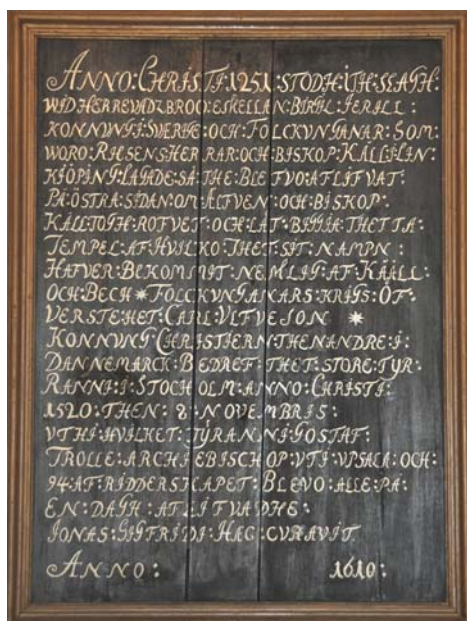 ANNO:CHRISTI:1251:STODH:ITH:SLAGH:
WIDHERREVADZBROO:ESHELLAN:BIRGL:IERILL:
KONNVNG:I:SVERIGE:OCH:FOLCKVNGANAR:SOM:
WORO:RICHSENS:HERRAR:OCH:BISKOP:KÄLL:I:LIN:
KIÖPING:LAGADE:SÅ:THE:BLEFVO:AT:LIFVAT:
PÅ:ÖSTRA:SIDAN:OM:ÄLFVEN:OCH:BISKOP:
KÄLL:TOGH:ROFVET:OCH:LÄT:BIGGIA:THETTA:
TEMPEL:AF:HVILKO:THET:SIT:NAMPN:
HAFVER:BEKOMMIT:NEMLIG:AF:KÄÄLL:
OCH:BECH✷FOLCKVNGANARS:KRIGS:ÖF:
VERSTE:HET:CARL:VLFVESON ✷
KONNVNG:CHRISTIERN:THEN:ANDRE:I:
DANNEMARCK:BEDREF:THET:STORE:TYR:
RANNI:I:STOCHOLM:ANNO:CHRISTI:
1520:THEN:8:NOVEMBRIS:
VTHI:HVILHET:TYRANNI:GOSTAF:
TROLLE:ARCHIEBISCHOP:VTI:VPSALA:OCH:
94:AT:RIDDERSKAPET:BLEVO:ALLE:PÅ:
EN:DAGH:AT:LIFVADHE:
JONAS:SIGFRIDI:HÆC:CVRAVIT.
ANNO: 1610: